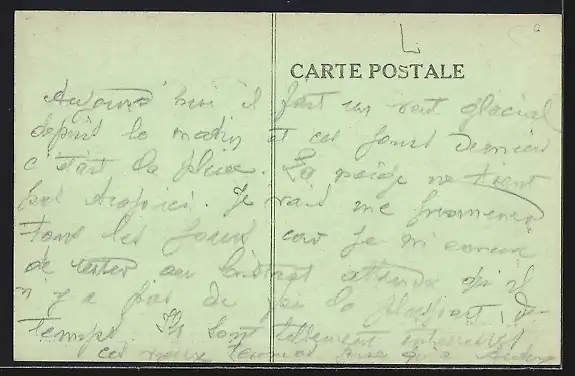 CARTE POSTALE
Aujourd'hui il fait un vent glacial
depuis le matin et ces jours derniers
c'était la pluie. La neige ne tient
pas ici. Je vais me promener
tous les jours car je m'ennuie
de rester au attendu qu'il
n'y a pas de feu la plupart du
temps. Ils sont tellement
ces vieux